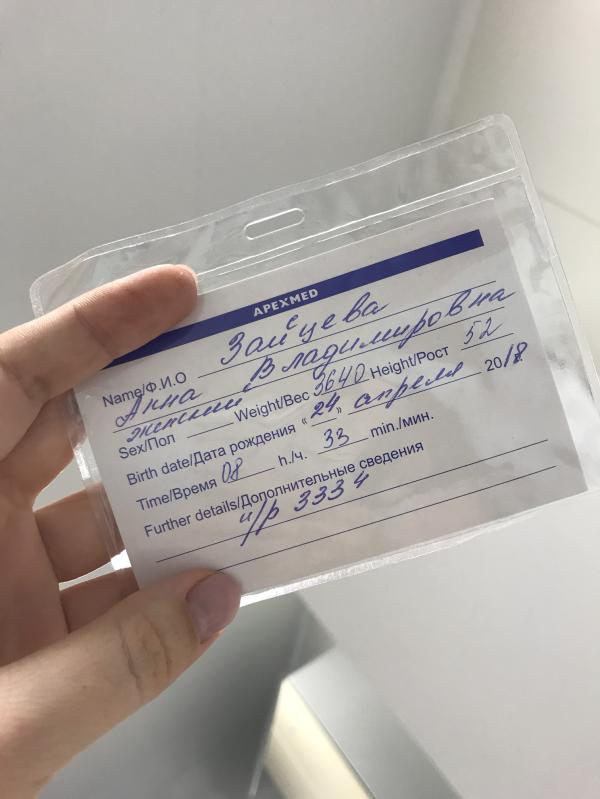 APEXMED
Name/Ф.И.О Зайцева
Анна Владимировна
Sex/Пол женский Weight/Вес 3640 Height/Рост 52
Birth date/Дата рождения « 24 » апреля 2018
Time/Время 08 h./ч. 33 min./мин.
Further details/Дополнительные сведения
и/р 3334